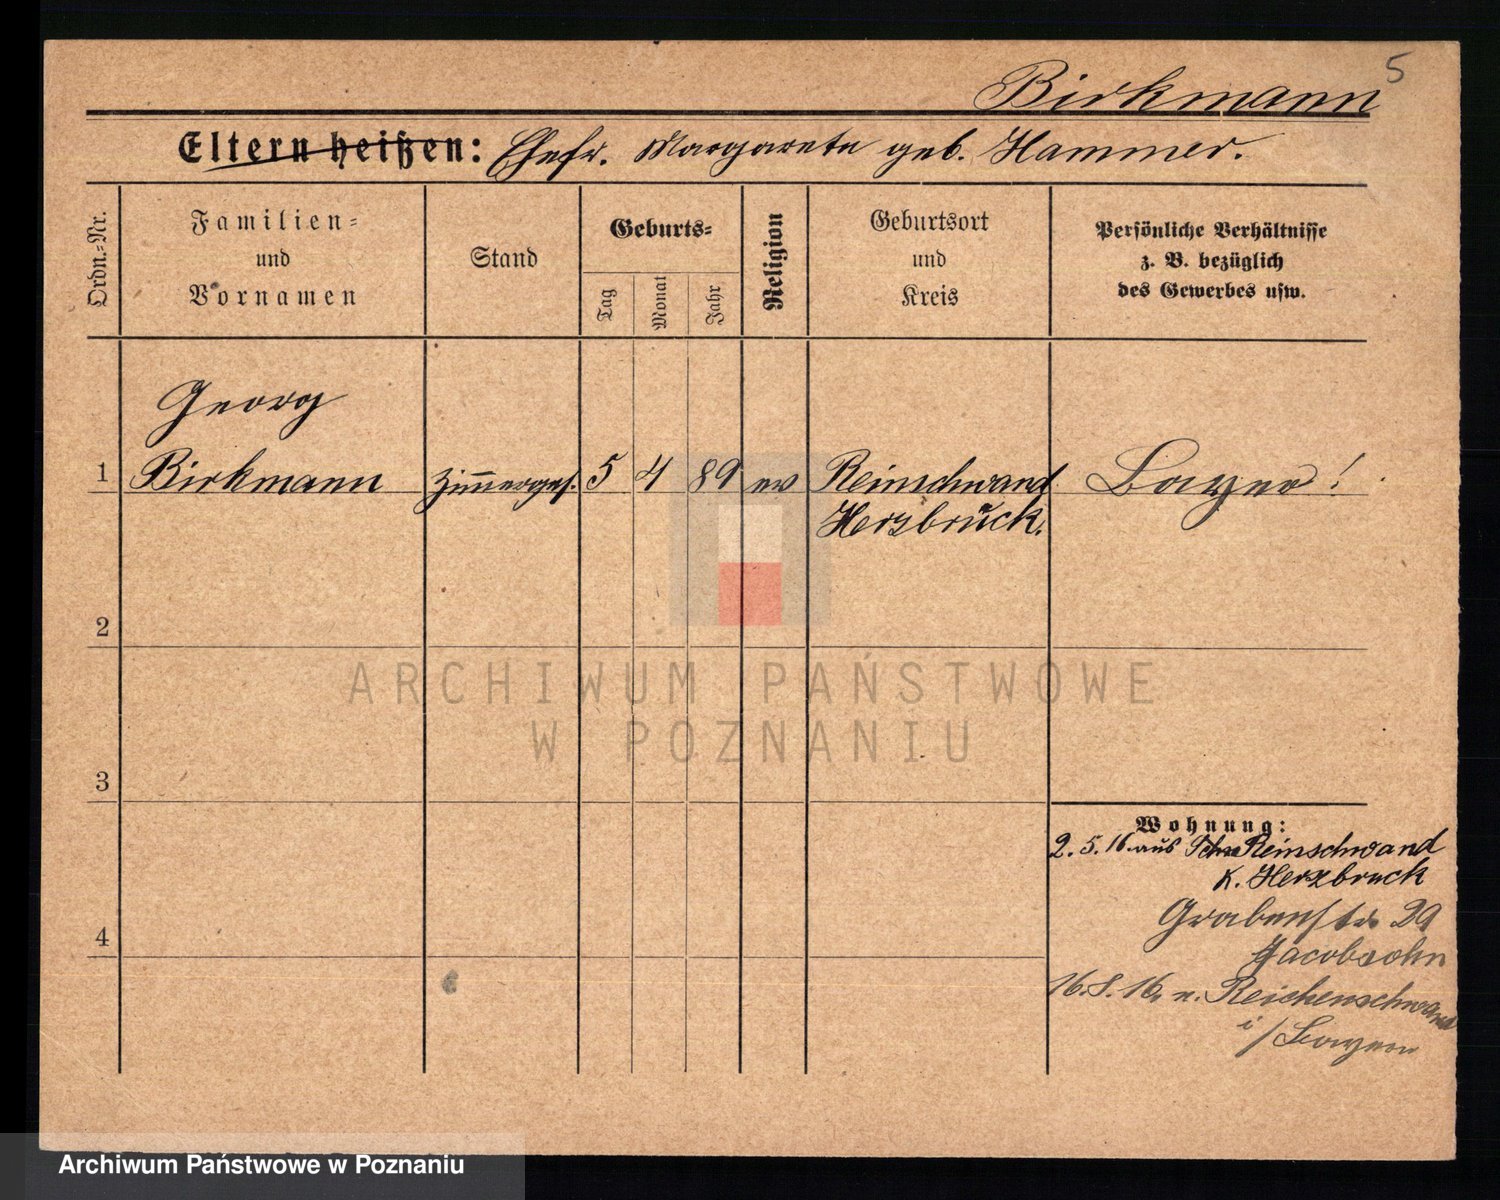 5
Birkmann
Eltern heißen: Ehefr. Margarete geb. Hammer.
Ordn.=Nr.
Familien=
und
Vornamen
Stand
Geburts=
Tag
Monat
Jahr
Religion
Geburtsort
und
Kreis
Persönliche Verhältnisse
z. B. bezüglich
des Gewerbes usw.
Georg
1 Birkmann Zimmerges. 5 4 89 ev Reinschwand Bayer!
Herzbruck.
2
3
4
Wohnung:
2.5.16. aus Reinschwand
K. Herzbruck
Grabenstr 29
Jacobsohn
16.8.16. n. Reichenschwand
i/Bayern
ARCHIWUM PAŃSTWOWE
W POZNANIU
Archiwum Państwowe w Poznaniu